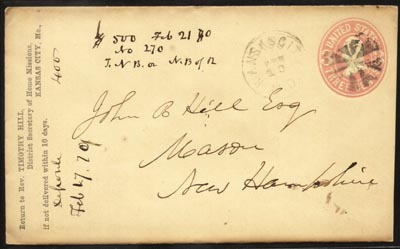 $ 500 Feb 21 80
No 270
T. N B. or N. B of N
KANSAS CITY
UNITED STATES
THREE
John B Hill Esq
Mason
New Hampshire
Return to Rev. TIMOTHY HILL,
District Secretary of Home Missions,
KANSAS CITY, Mo.,
if not delivered within 10 days.
400
Feb 27. 79